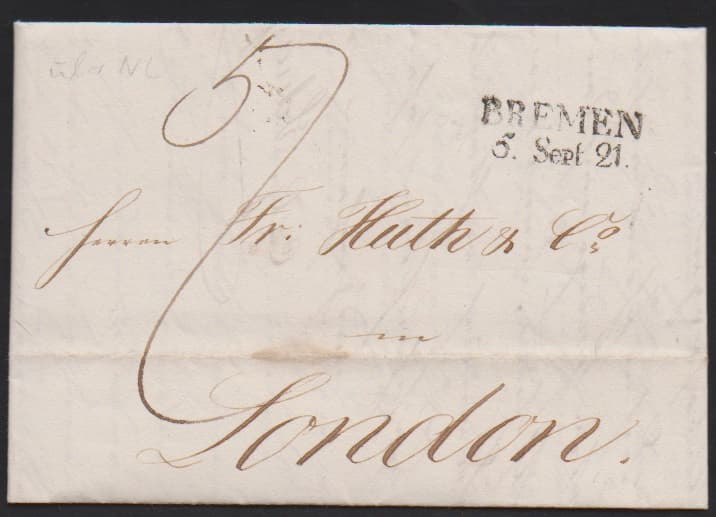 BREMEN
5. Sept 21.
Herren Fr: Huth & Co
in
London.